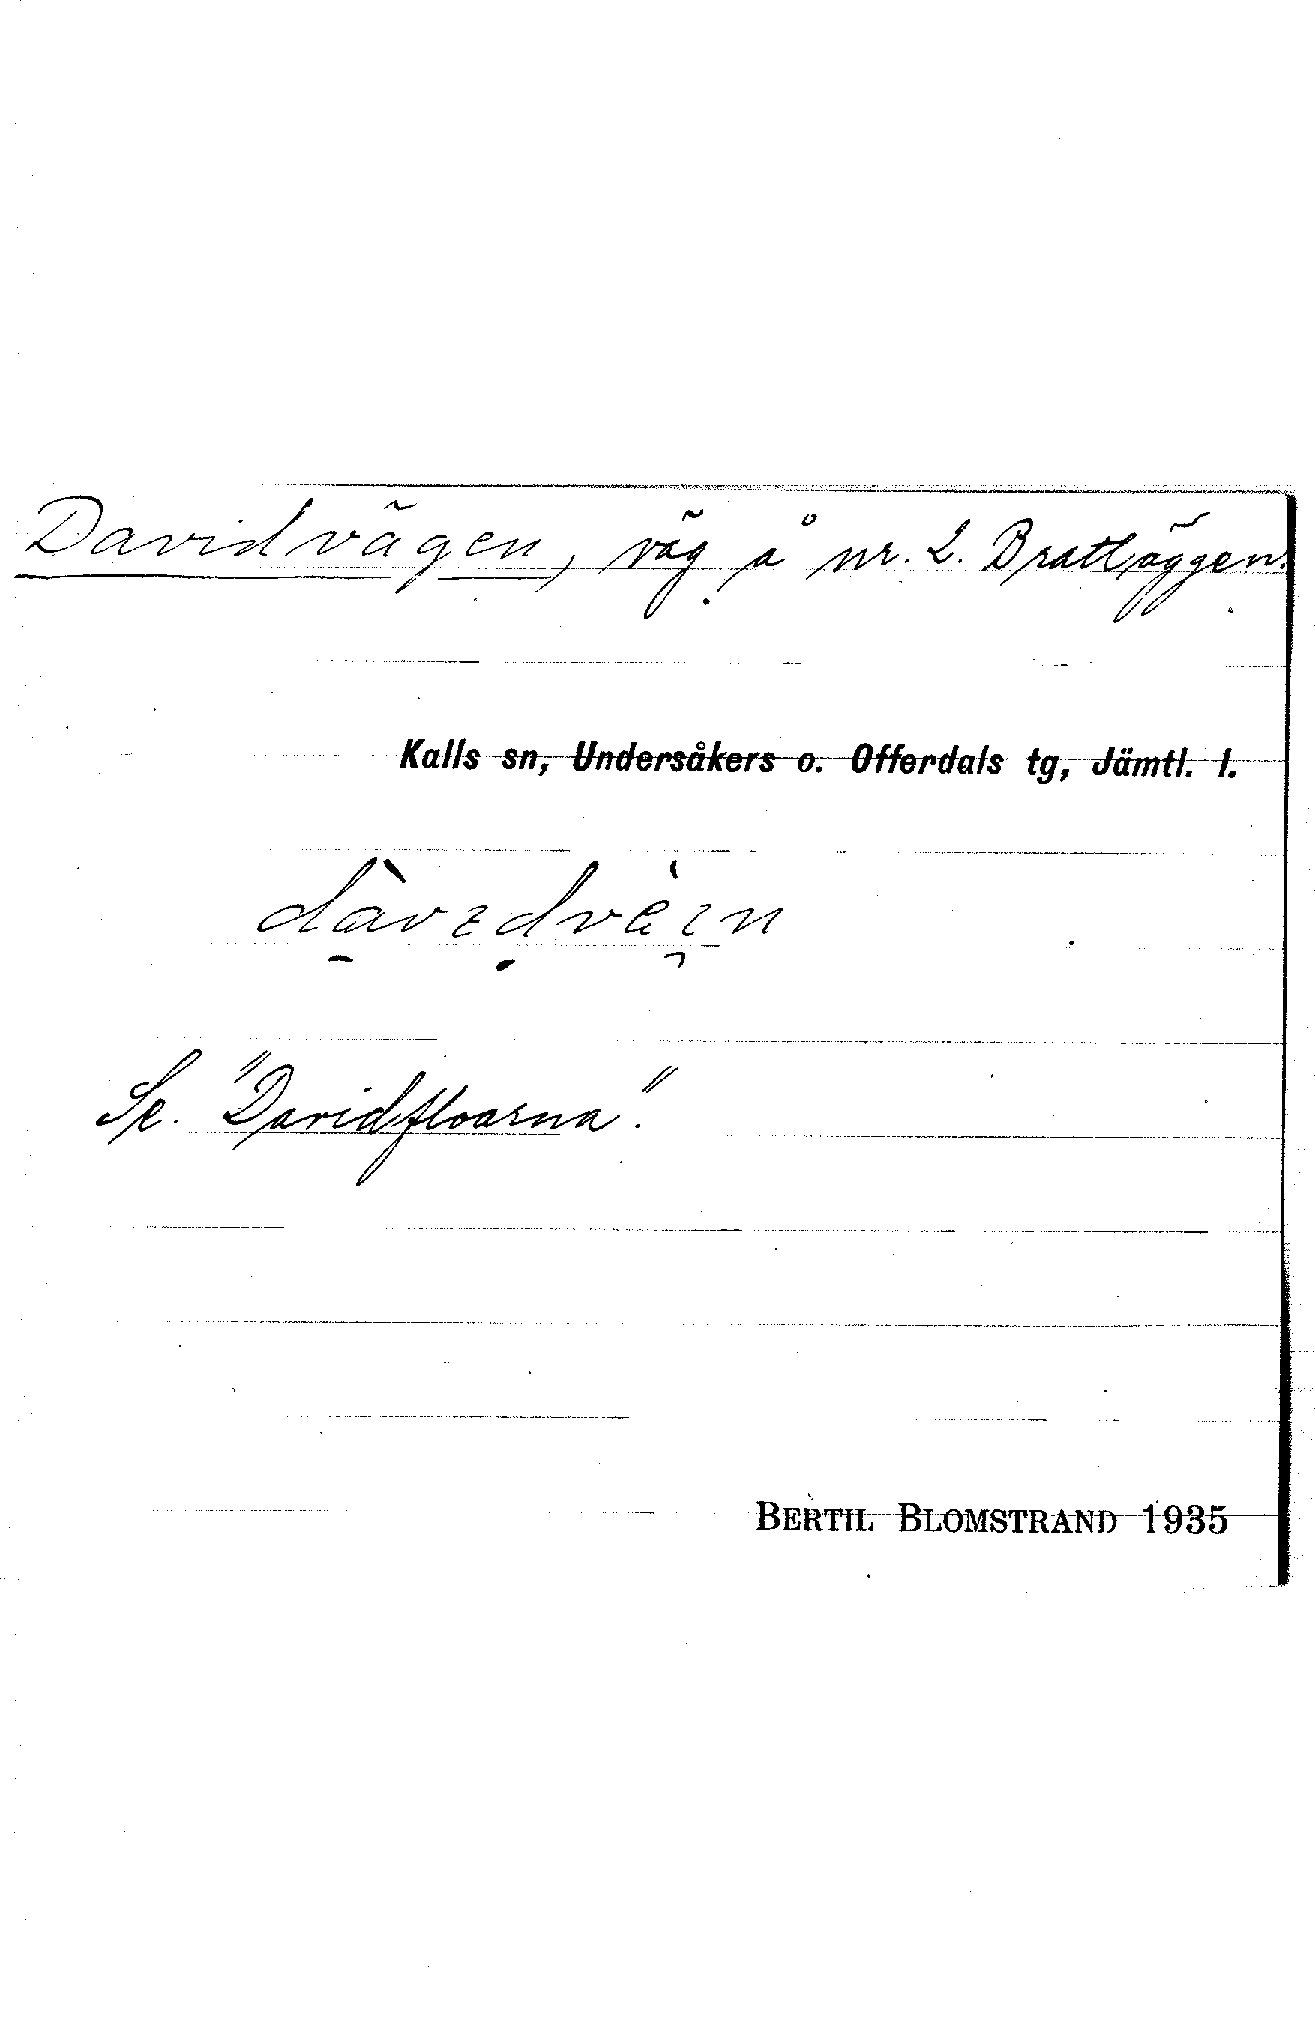 Davidvägen, väg å nr. 2. Brattäggen.
Kalls sn, Undersåkers o. Offerdals tg, Jämtl. l.
Se. "Davidfloarna".
BERTIL BLOMSTRAND 1935